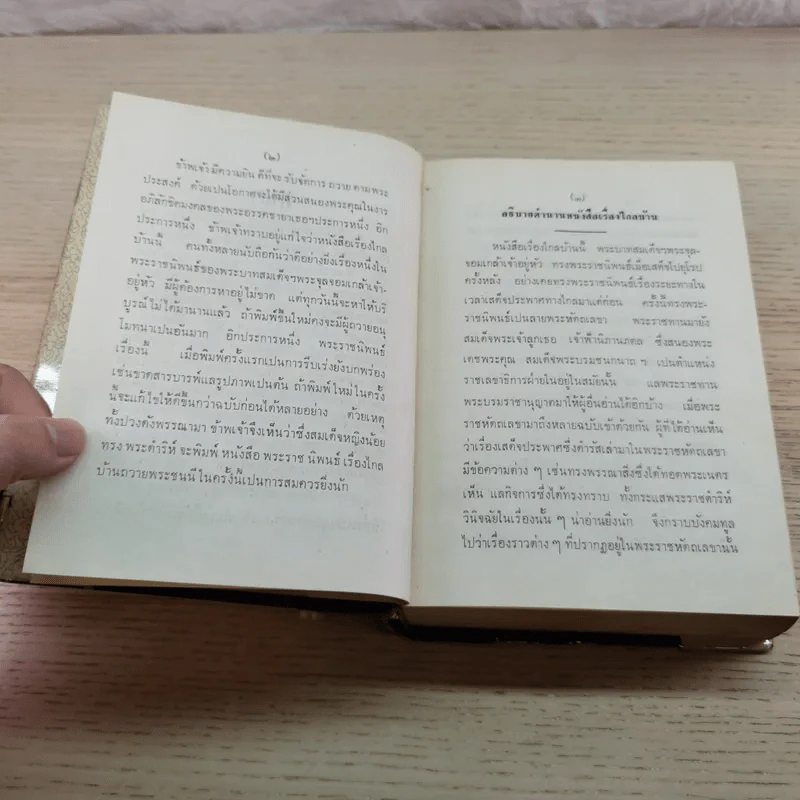 (๒)
ข้าพเจ้า มีความยิน ดีที่จะ รับจัดการ ถวาย ตามพระ
ประสงค์ ด้วยเปนโอกาศจะได้มีส่วนสนองพระคุณในงาร
อภิลักขิตมงคลของพระอรรคชายาเธอฯประการหนึ่ง อิก
ประการหนึ่ง ข้าพเจ้าทราบอยู่แก่ใจว่าหนังสือเรื่องไกล
บ้านนี้ คนทั้งหลายนับถือกันว่าดีอย่างยิ่งเรื่องหนึ่งใน
พระราชนิพนธ์ของพระบาทสมเด็จฯพระจุลจอมเกล้าเจ้า-
อยู่หัว มีผู้ต้องการหาอยู่ไม่ขาด แต่ทุกวันนี้จะหาให้บริ
บูรณ์ไม่ได้มานานแล้ว ถ้าพิมพ์ขึ้นใหม่คงจะมีผู้ถวายอนุ
โมทนาเปนอันมาก อิกประการหนึ่ง พระราชนิพนธ์
เรื่องนี้ เมื่อพิมพ์ครั้งแรกเปนการรีบเร่งยังบกพร่อง
เช่นขาดสารบารพ์แลรูปภาพเปนต้น ถ้าพิมพ์ใหม่ในครั้ง
นี้จะแก้ไขให้ดีขึ้นกว่าฉบับก่อนได้หลายอย่าง ด้วยเหตุ
ทั้งปวงดังพรรณามา ข้าพเจ้าจึงเห็นว่าซึ่งสมเด็จหญิงน้อย
ทรง พระดำริห์ จะพิมพ์ หนังสือ พระราช นิพนธ์ เรื่องไกล
บ้านถวายพระชนนี ในครั้งนี้เปนการสมควรยิ่งนัก
(๓)
อธิบายตำนานหนังสือเรื่องไกลบ้าน
หนังสือเรื่องไกลบ้านนี้ พระบาทสมเด็จฯพระจุล-
จอมเกล้าเจ้าอยู่หัว ทรงพระราชนิพนธ์เมื่อเสด็จไปยุโรป
ครั้งหลัง อย่างเคยทรงพระราชนิพนธ์เรื่องระยะทางใน
เวลาเสด็จประพาศทางไกลมาแต่ก่อน ครั้งนี้ทรงพระ-
ราชนิพนธ์เปนลายพระหัดถเลขา พระราชทานมายัง
สมเด็จพระเจ้าลูกเธอ เจ้าฟ้านิภานภดล ซึ่งสนองพระ
เดชพระคุณ สมเด็จพระบรมชนกนาถ ฯ เปนตำแหน่ง
ราชเลขาธิการฝ่ายในอยู่ในสมัยนั้น แลพระราชทาน
พระบรมราชานุญาตมาให้ผู้อื่นอ่านได้อิกบ้าง เมื่อพระ
ราชหัดถเลขามาถึงหลายฉบับเข้าด้วยกัน ผู้ที่ได้อ่านเห็น
ว่าเรื่องเสด็จประพาศซึ่งดำรัสเล่ามาในพระราชหัดถเลขา
มีข้อความต่าง ๆ เช่นทรงพรรณาสิ่งซึ่งได้ทอดพระเนตร
เห็น แลกิจการซึ่งได้ทรงทราบ ทั้งกระแสพระราชดำริห์
วินิจฉัยในเรื่องนั้น ๆ น่าอ่านยิ่งนัก จึงกราบบังคมทูล
ไปว่าเรื่องราวต่าง ๆ ที่ปรากฏอยู่ในพระราชหัดถเลขานั้น